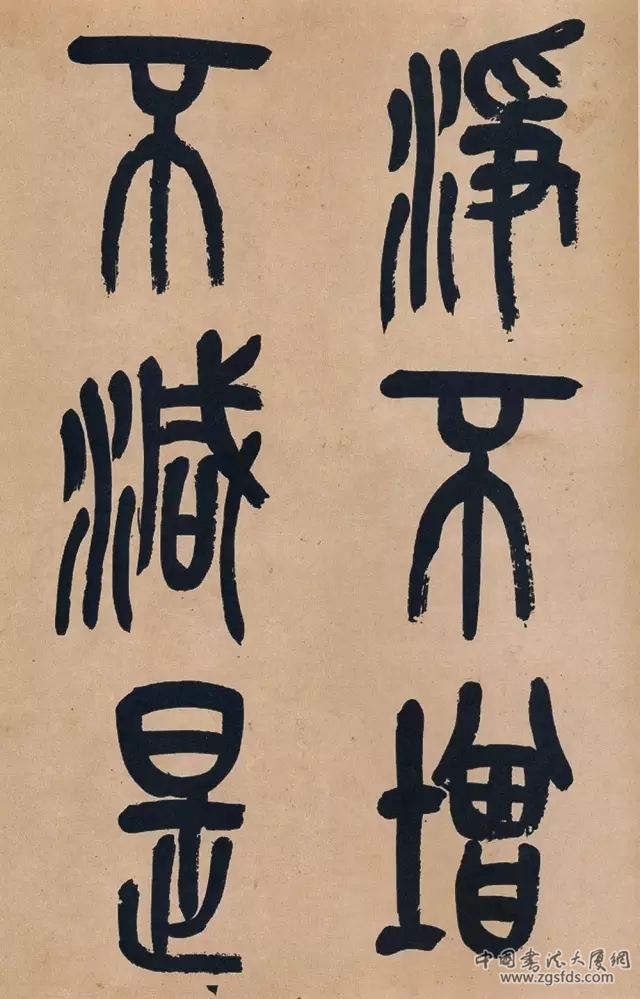 淨不增
不減是
中国书法大厦網
www.zgsfds.com